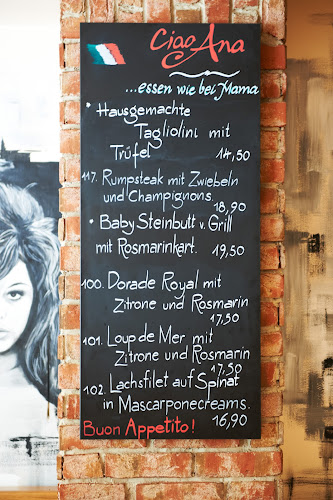 Ciao Ana
...essen wie bei Mama
* Hausgemachte
Tagliolini mit
Trüfel 14,50
117. Rumpsteak mit Zwiebeln
und Champignons
18,90
* Baby Steinbutt v. Grill
mit Rosmarinkart. 19,50
100. Dorade Royal mit
Zitrone und Rosmarin
17,50
101. Loup de Mer mit
Zitrone und Rosmarin
17,50
102. Lachsfilet auf Spinat
in Mascarponecreams.
Buon Appetito! 16,90